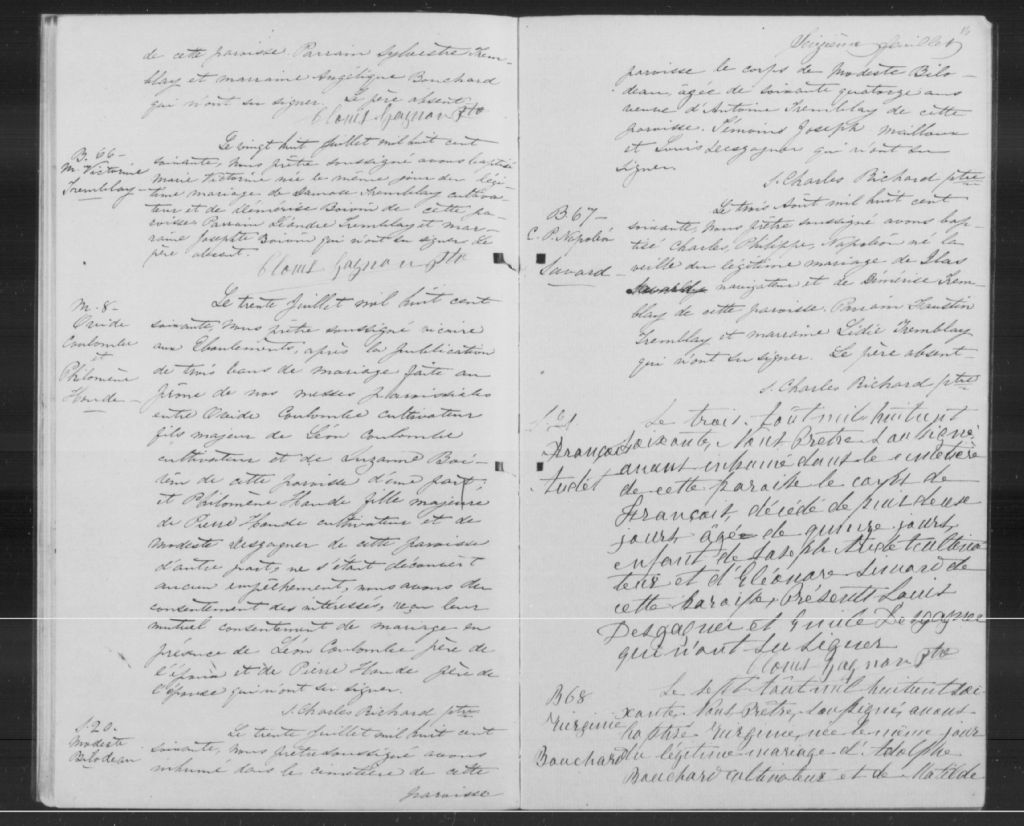 de cette paroisse. Parrain Sylvestre Trem-
blay et marraine Angélique Bouchard
qui n'ont su signer. Le père absent.
Clovis Gagnon Ptre
B. 66 -
M. Victorine
Tremblay -
Le vingt huit Juillet mil huit cent
soixante, Nous prêtre soussigné avons baptisé
Marie Victorine née le même jour du légi-
time mariage de Tremblay cultiva-
teur et de Démérise Boivin de cette pa-
roisse. Parrain Léandre Tremblay et mar-
raine Josephte Boivin qui n'ont su signer. Le
père absent.
Clovis Gagnon Ptre
M. 8 -
Ovide
Coulombe
et
Philomène
Houde -
Le trente Juillet mil huit cent
soixante, Nous prêtre soussigné vicaire
aux Eboulements, après la publication
de trois bans de mariage faite au
prône de nos messes paroissiales
entre Ovide Coulombe cultivateur
fils majeur de Léon Coulombe
cultivateur et de Suzanne Boi-
vin de cette paroisse d'une part;
et Philomène Houde fille majeure
de Pierre Houde cultivateur et de
Modeste Desgagner de cette paroisse
d'autre part, ne s'étant découvert
aucun empêchement, nous avons du
consentement des intéressés, reçu leur
mutuel consentement de mariage en
présence de Léon Coulombe père de
l'époux et de Pierre Houde père de
l'épouse qui n'ont su signer.
J. Charles Richard ptre
S. 20.
Modeste
Bilodeau
Le trente Juillet mil huit cent
soixante, Nous prêtre soussigné avons
inhumé dans le cimetière de cette
paroisse
16
Seizième feuillet
paroisse le corps de Modeste Bilo-
deau, âgée de soixante quatorze ans
veuve d'Antoine Tremblay de cette
paroisse. Témoins Joseph Mailloux
et Louis Desgagner qui n'ont su
signer.
J. Charles Richard ptre
B 67 -
C. P. Napoléon
Savard -
Le trois Août mil huit cent
soixante, Nous prêtre soussigné avons bap-
tisé Charles, Philippe, Napoléon né la
veille du légitime mariage de
navigateur et de Démérise Trem-
blay de cette paroisse. Parrain Faustin
Tremblay et marraine Lédie Tremblay
qui n'ont su signer. Le père absent -
J. Charles Richard ptre
S. 21
François
Audet
Le trois Août mil huit cent
soixante, Nous Prêtre Soussigné
avons inhumé dans le cimetière
de cette paroisse le corps de
François, décédé depuis deux
jours âgé de quinze jours,
enfant de Joseph Audet cultiva
teur et d'Eléonore Savard de
cette paroisse, Présents Louis
Desgagner et Emile Desgagner
qui n'ont su signer
Clovis Gagnon Ptre
B 68
Virginie
Bouchard
Le sept Août mil huit cent soi
xante, Nous Prêtre, Soussigné, avons
baptisé Virginie, née le même jour
du légitime mariage d'Adolphe
Bouchard cultivateur et de Matilde